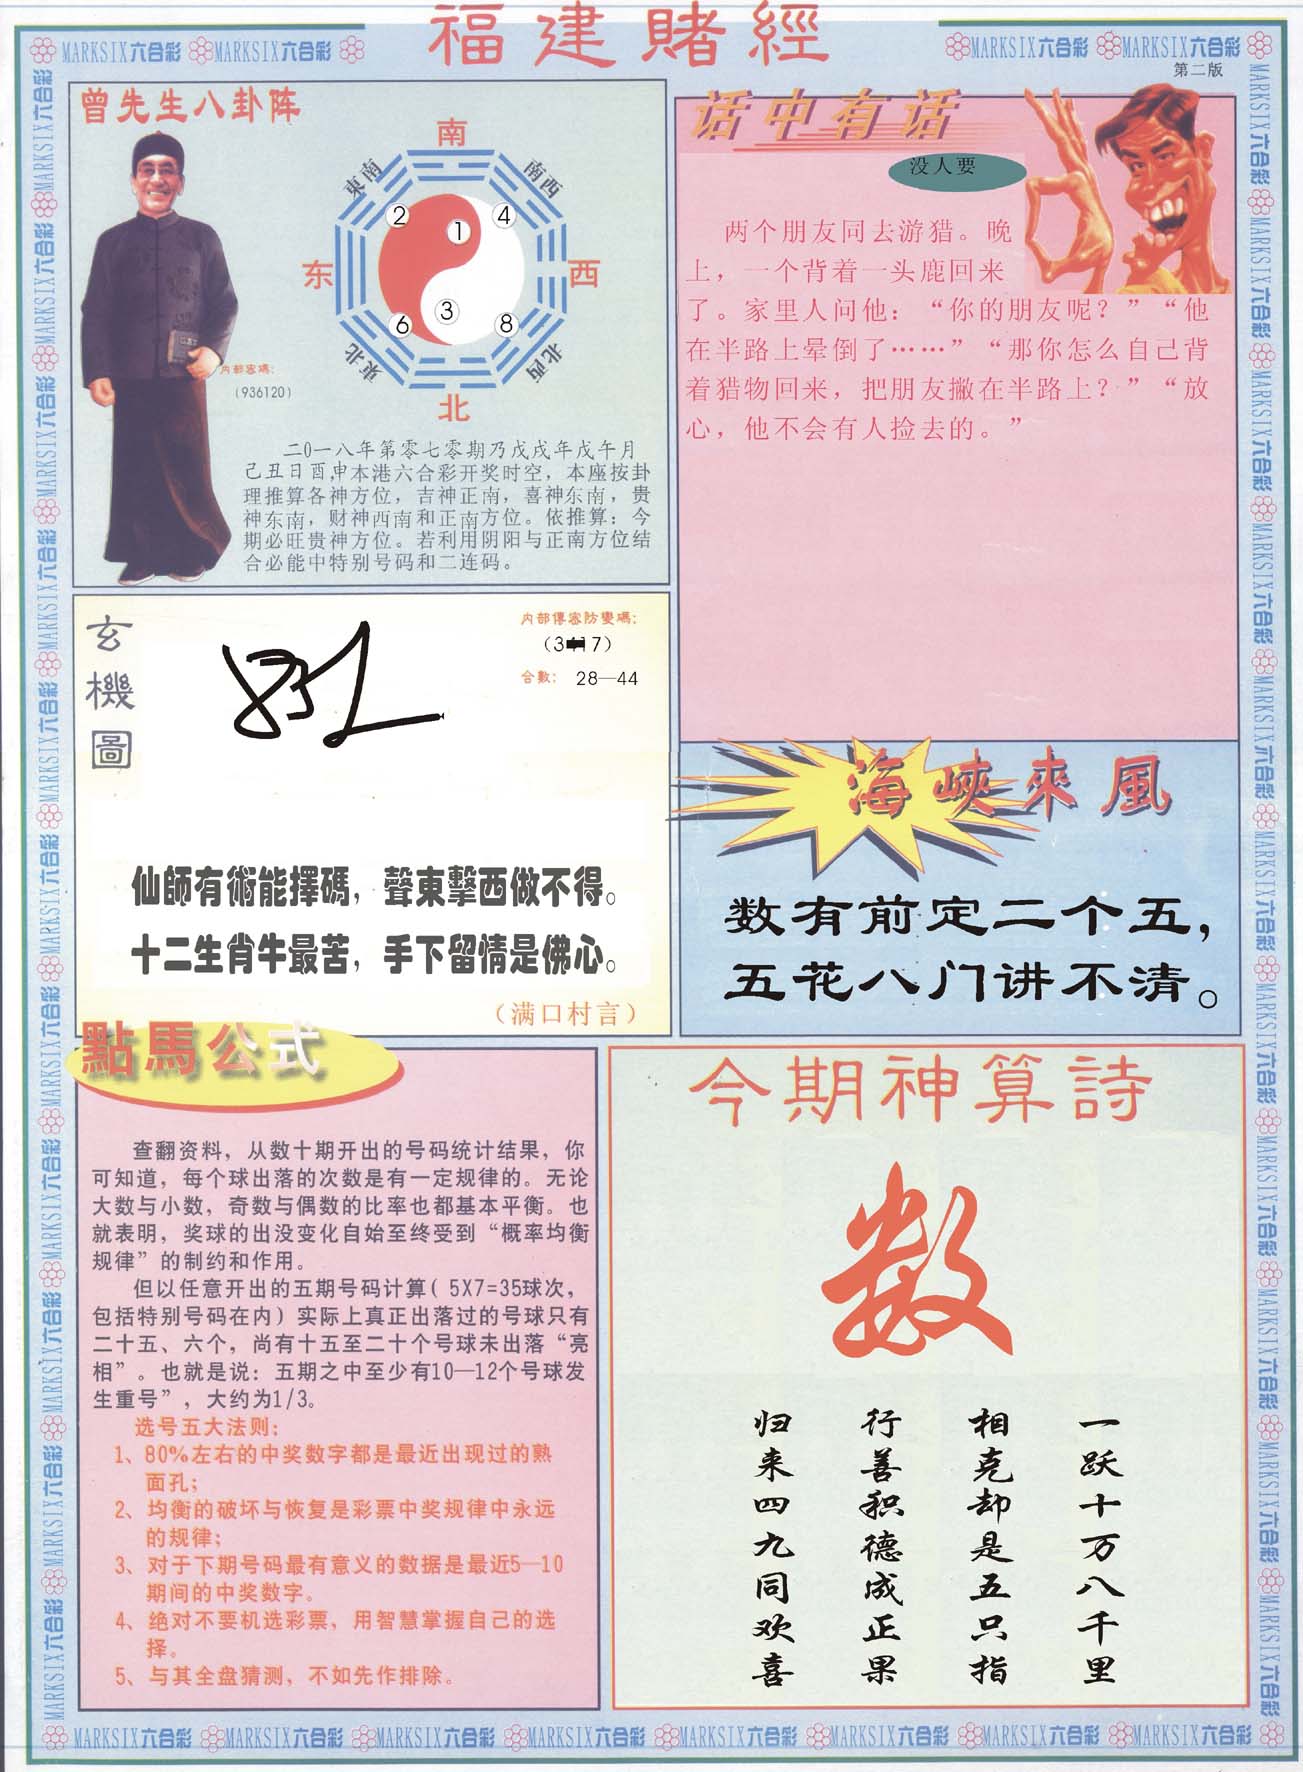 福建賭經
MARKSIX六合彩 MARKSIX六合彩
MARKSIX六合彩 MARKSIX六合彩
第二版
曾先生八卦阵
南
東南
南西
2
1
4
东
西
3
6
8
東北
北西
北
内部密碼：
（936120）
二0一八年第零七零期乃戊戌年戊午月
己丑日酉,申本港六合彩开奖时空，本座按卦
理推算各神方位，吉神正南，喜神东南，贵
神东南，财神西南和正南方位。依推算：今
期必旺贵神方位。若利用阴阳与正南方位结
合必能中特别号码和二连码。
话中有话
没人要
两个朋友同去游猎。晚
上，一个背着一头鹿回来
了。家里人问他：“你的朋友呢？”“他
在半路上晕倒了……”“那你怎么自己背
着猎物回来，把朋友撇在半路上？”“放
心，他不会有人捡去的。”
玄機圖
内部傳密防變碼：
合數： 28—44
仙師有術能擇碼，聲東擊西做不得。
十二生肖牛最苦，手下留情是佛心。
（满口村言）
海峽來風
数有前定二个五，
五花八门讲不清。
點馬公式
查翻资料，从数十期开出的号码统计结果，你
可知道，每个球出落的次数是有一定规律的。无论
大数与小数，奇数与偶数的比率也都基本平衡。也
就表明，奖球的出没变化自始至终受到“概率均衡
规律”的制约和作用。
但以任意开出的五期号码计算( 5X7=35球次，
包括特别号码在内）实际上真正出落过的号球只有
二十五、六个，尚有十五至二十个号球未出落“亮
相”。也就是说：五期之中至少有10—12个号球发
生重号”，大约为1/3。
选号五大法则：
1、80%左右的中奖数字都是最近出现过的熟
面孔；
2、均衡的破坏与恢复是彩票中奖规律中永远
的规律；
3、对于下期号码最有意义的数据是最近5—10
期间的中奖数字。
4、绝对不要机选彩票，用智慧掌握自己的选
择。
5、与其全盘猜测，不如先作排除。
今期神算詩
数
一跃十万八千里
相克却是五只指
行善积德成正果
归来四九同欢喜
MARKSIX六合彩 MARKSIX六合彩 MARKSIX六合彩 MARKSIX六合彩 MARKSIX六合彩 MARKSIX六合彩 MARKSIX六合彩 MARKSIX六合彩